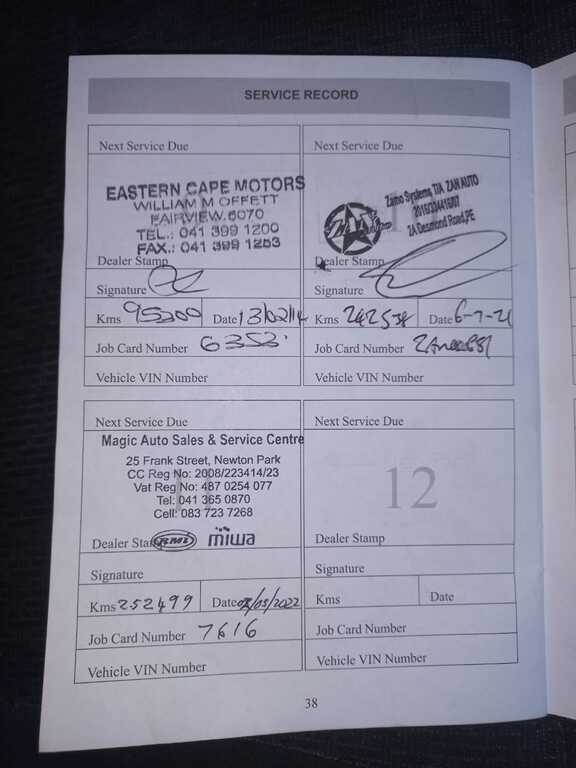 SERVICE RECORD
Next Service Due
EASTERN CAPE MOTORS
WILLIAM MOFFETT
FAIRVIEW.6070
TEL.: 041 399 1200
FAX.: 041 399 1253
Dealer Stamp
Signature
Kms 95200 Date 13/02/14
Job Card Number 6353
Vehicle VIN Number
Next Service Due
Zamo Systems T/A ZAN AUTO
2A Desmond Road,PE
Dealer Stamp
Signature
Kms 242538 Date 6-7-21
Job Card Number
Vehicle VIN Number
Next Service Due
Magic Auto Sales & Service Centre
25 Frank Street, Newton Park
CC Reg No: 2008/223414/23
Vat Reg No: 487 0254 077
Tel: 041 365 0870
Cell: 083 723 7268
Dealer Stamp RMI miwa
Signature
Kms 252499 Date /05/2022
Job Card Number 7616
Vehicle VIN Number
Next Service Due
12
Dealer Stamp
Signature
Kms Date
Job Card Number
Vehicle VIN Number
38